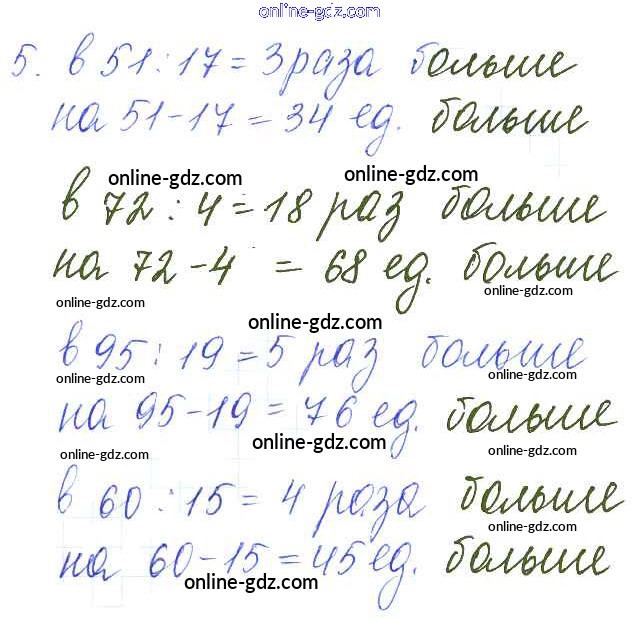 online-gdz.com
5. в 51 : 17 = 3 раза больше
на 51 - 17 = 34 ед. больше
online-gdz.com online-gdz.com
в 72 : 4 = 18 раз больше
на 72 - 4 = 68 ед. больше
online-gdz.com online-gdz.com
online-gdz.com
в 95 : 19 = 5 раз больше
online-gdz.com online-gdz.com
на 95 - 19 = 76 ед. больше
online-gdz.com
online-gdz.com online-gdz.com
в 60 : 15 = 4 раза больше
online-gdz.com
на 60 - 15 = 45 ед. больше
online-gdz.com